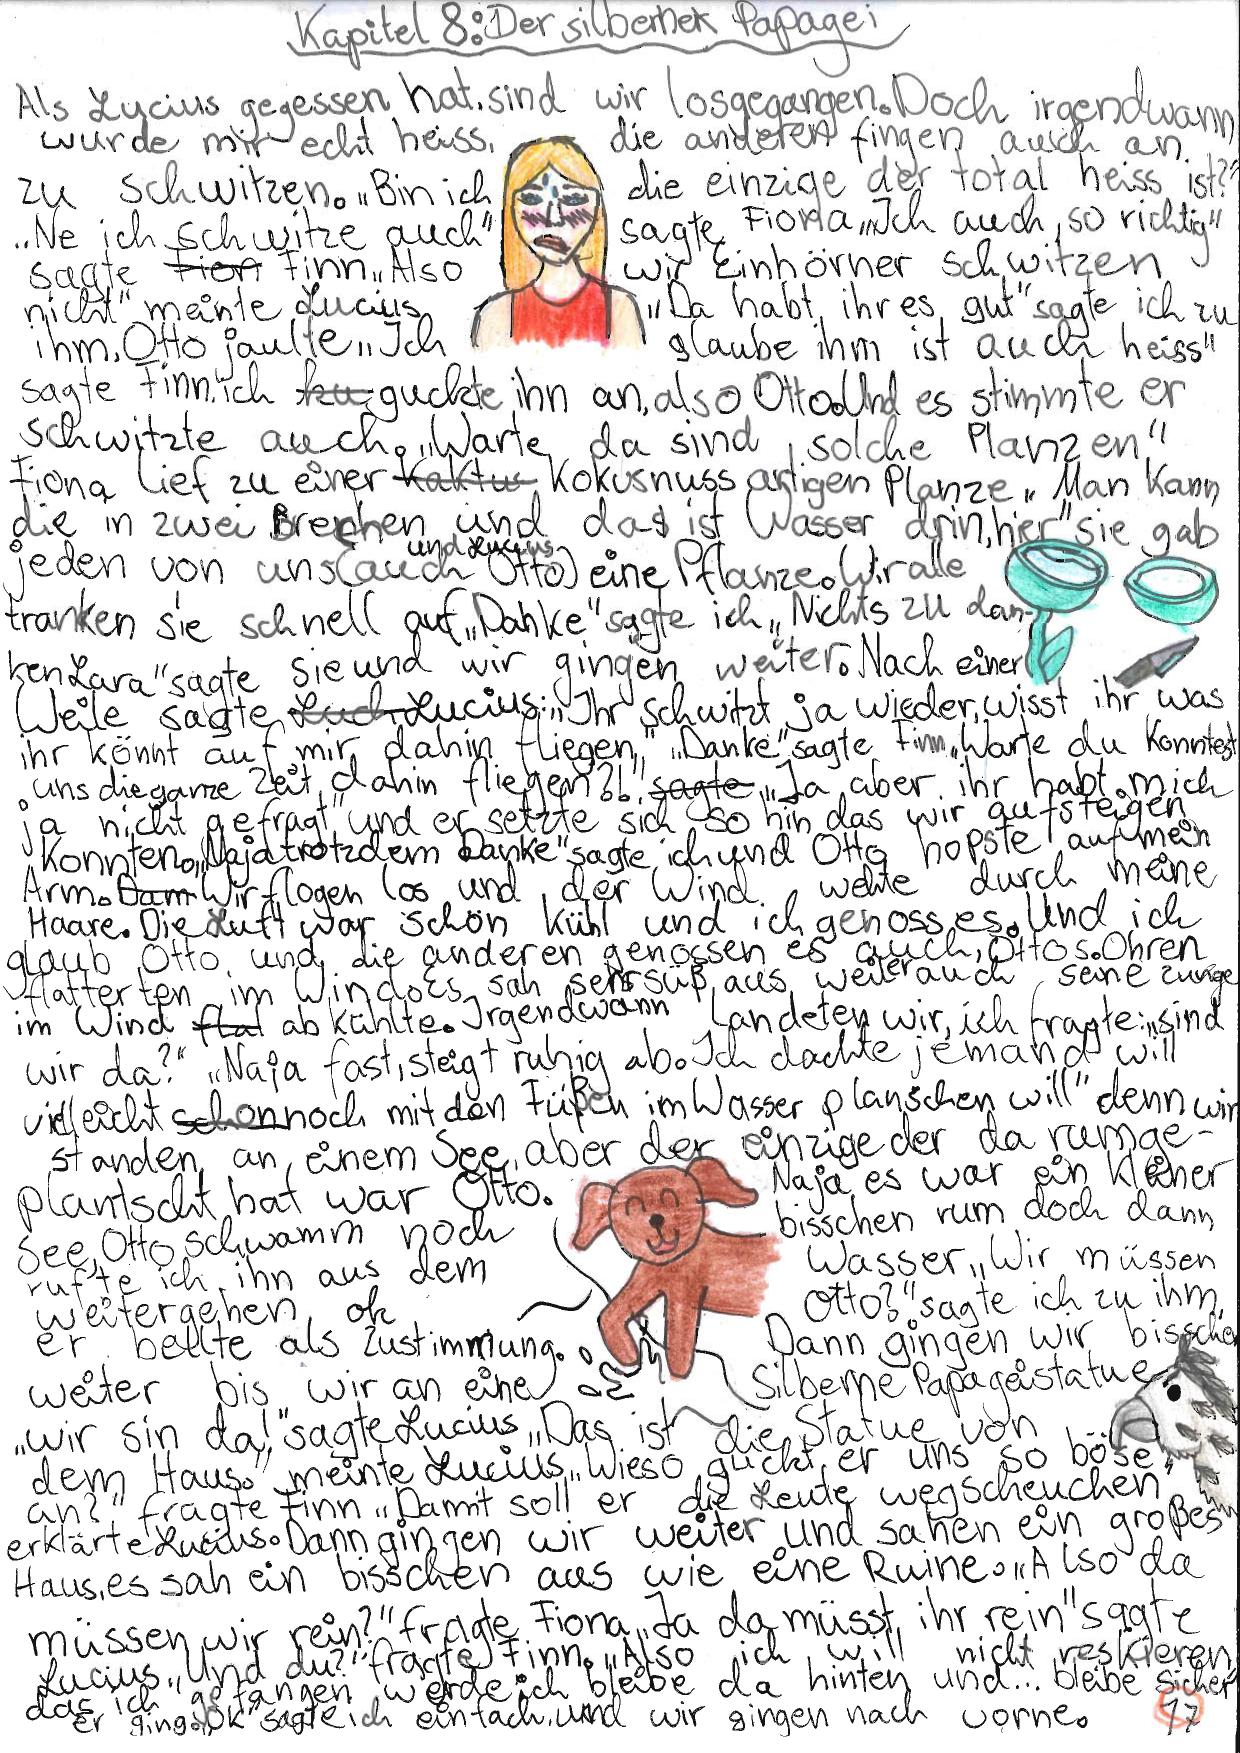 Kapitel 8: Der silberner Papagei
Als Lucius gegessen hat, sind wir losgegangen. Doch irgendwann
wurde mir echt heiss, die anderen fingen auch an
zu schwitzen. „Bin ich die einzige der total heiss ist?"
„Ne ich schwitze auch" sagte Fiona „Ich auch, so richtig"
sagte Fion Finn „Also wir Einhörner schwitzen
nicht" meinte Lucius „Da habt ihr es gut" sagte ich zu
ihm, Otto jaulte „Ich glaube ihm ist auch heiss"
sagte Finn, ich ku guckte ihn an, also Otto. Und es stimmte er
schwitzte auch. „Warte da sind solche Planzen"
Fiona lief zu einer Kaktus Kokusnuss artigen Planze „Man kann
die in zwei Brechen und das ist Wasser drin, hier" sie gab
jeden von uns (auch Otto und Lucius) eine Pflanze. Wir alle
tranken sie schnell auf „Danke" sagte ich „Nichts zu dan-
ken Lara" sagte sie und wir gingen weiter. Nach einer
Weile sagte Luch Lucius: „Ihr schwitzt ja wieder, wisst ihr was
ihr könnt auf mir dahin fliegen" „Danke" sagte Finn „Warte du konntest
uns die ganze Zeit dahin fliegen?!" sagte „Ja aber ihr habt mich
ja nicht gefragt" und er setzte sich so hin das wir aufsteigen
konnten. „Naja trotzdem Danke" sagte ich und Otto hopste auf mein
Arm. Dam Wir flogen los und der Wind wehte durch meine
Haare. Die Luft war schön kühl und ich genoss es. Und ich
glaub Otto und die anderen genossen es auch, Ottos Ohren
flatterten im Wind. Es sah sehr süß aus weil er auch seine zunge
im Wind flat abkühlte. Irgendwann Landeten wir, ich fragte: „sind
wir da?" „Naja fast, steigt ruhig ab. Ich dachte jemand will
vielleicht schon noch mit den Füßen im Wasser planschen will" denn wir
standen an einem See, aber der einzige der da rumge-
plantscht hat war Otto. Naja es war ein kleiner
See, Otto schwamm noch bisschen rum doch dann
rufte ich ihn aus dem Wasser „Wir müssen
weitergehen ok Otto?" sagte ich zu ihm,
er bellte als Zustimmung. Dann gingen wir bisschen
weiter bis wir an eine silberne Papageistatue
„wir sin da!" sagte Lucius „Das ist die Statue von
dem Haus." meinte Lucius „Wieso guckt er uns so böse
an?" fragte Finn „Damit soll er die Leute wegscheuchen"
erklärte Lucius. Dann gingen wir weiter und sahen ein großes
Haus, es sah ein bisschen aus wie eine Ruine. „Also da
müssen wir rein?" fragte Fiona „Ja da müsst ihr rein" sagte
Lucius „Und du?" fragte Finn. „Also ich will nicht reskieren
das ich gefangen werde ich bleibe da hinten und... bleibe sicher"
er ging. „Ok" sagte ich einfach, und wir gingen nach vorne.
17